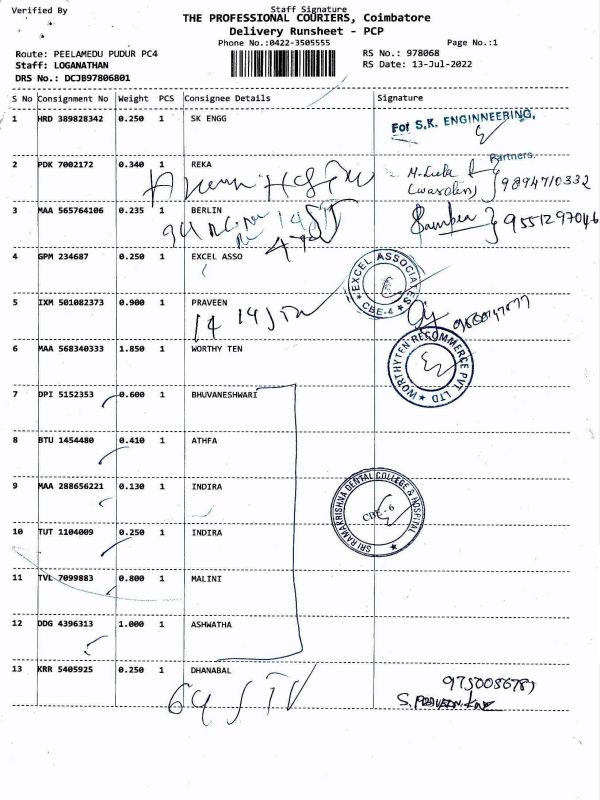 Verified By
Staff Signature
THE PROFESSIONAL COURIERS, Coimbatore
Delivery Runsheet - PCP
Phone No.:0422-3505555
Page No.:1
Route: PEELAMEDU PUDUR PC4
RS No.: 978068
Staff: LOGANATHAN
RS Date: 13-Jul-2022
DRS No.: DCJB97806801
S No Consignment No Weight PCS Consignee Details Signature
1 HRD 389828342 0.250 1 SK ENGG
For S.K. ENGINNEERING,
Partners.
2 PDK 7002172 0.340 1 REKA
9894710332
3 MAA 565764106 0.235 1 BERLIN
9551297046
4 GPM 234687 0.250 1 EXCEL ASSO
EXCEL ASSOCIATES
CBE-4
5 IXM 501082373 0.900 1 PRAVEEN
6 MAA 568340333 1.850 1 WORTHY TEN
WORTHYTEN RECOMMERCE PVT LTD
7 DPI 5152353 0.600 1 BHUVANESHWARI
8 BTU 1454480 0.410 1 ATHFA
9 MAA 288656221 0.130 1 INDIRA
SRI RAMAKRISHNA DENTAL COLLEGE & HOSPITAL
CBE-6
10 TUT 1104009 0.250 1 INDIRA
11 TVL 7099883 0.800 1 MALINI
12 DDG 4396313 1.000 1 ASHWATHA
13 KRR 5405925 0.250 1 DHANABAL